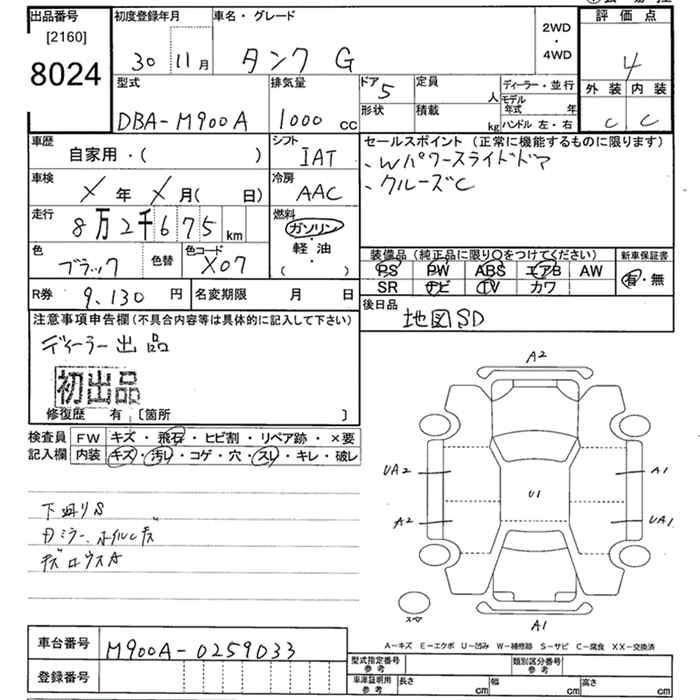 出品番号
[2160]
8024
初度登録年月
30 11月
車名・グレード
タンク G
2WD
・
4WD
評価点
4
外装 内装
C C
型式
DBA-M900A
排気量
1000 cc
ドア 5
形状
定員 人
積載 kg
ディーラー・並行
モデル年式 年
ハンドル 左・右
車歴
自家用・( )
シフト
IAT
セールスポイント (正常に機能するものに限ります)
、Wパワースライドドア
、クルーズC
車検
X 年 X 月( 日)
冷房
AAC
走行
8万2千675 km
燃料
ガソリン
・
軽油
( )
色
ブラック
色替
色コード
X07
装備品 (純正品に限り○をつけてください)
PS PW ABS エアB AW
SR ナビ TV カワ
新車保証書
有・無
R券 9,130 円
名変期限 月 日
後日品
地図SD
注意事項申告欄 (不具合内容等は具体的に記入して下さい)
ディーラー出品
初出品
修復歴 有 [箇所 ]
検査員
記入欄
FW キズ・飛石・ヒビ割・リペア跡・×要
内装 キズ・汚レ・コゲ・穴・スレ・キレ・破レ
下廻りS
ホイルCキズ
A2
UA2
A1
U1
A2
UA1
スペア
A1
A-キズ E-エクボ U-凹み W-補修跡 S-サビ C-腐食 XX-交換済
車台番号 M900A-0259033
登録番号
型式指定番号
参考
類別区分番号
参考
車庫証明用
参考
長さ cm
幅 cm
高さ cm